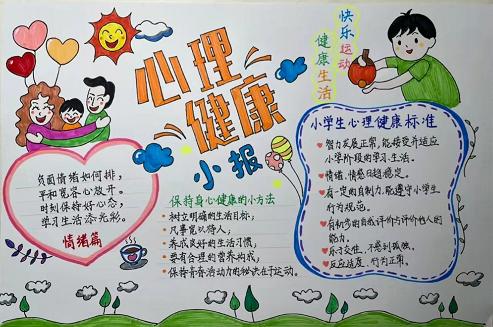 心理
健康
小报
快乐运动
健康生活
负面情绪如何排,
平和宽容心放开。
时刻保持好心态,
学习生活添光彩。
情绪篇
保持身心健康的小方法
树立明确的生活目标;
凡事宽以待人;
养成良好的生活习惯;
要有合理的营养构成;
保持青春活动力的秘诀在于运动。
小学生心理健康标准
智力发展正常,能接受并适应
小学阶段的学习、生活。
情绪、情感日趋稳定。
有一定的自制力,能遵守小学生
行为规范。
有初步的自我评价与评价他人的
能力。
乐于交往,不感到孤独。
反应适度、行为正常。